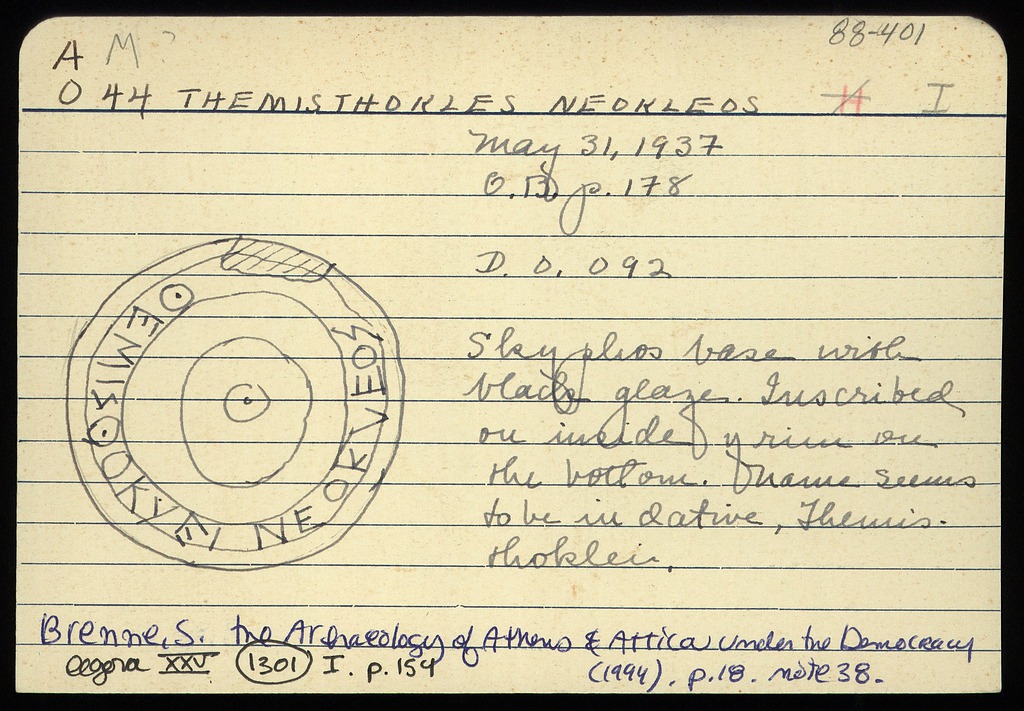 88-401
A M?
O 44 THEMISTHOKLES NEOKLEOS H I
May 31, 1937
O.B. p. 178
D. O. 092
Skyphos base with
black glaze. Inscribed
on inside of rim on
the bottom. Name seems
to be in dative, Themis-
thoklei.
ΘEMISΘOKVEI NEOKVEOS
Brenne, S. the Archaeology of Athens & Attica under the Democracy
(1994). p.18. note 38.
agora XXV 1301 I. p.154